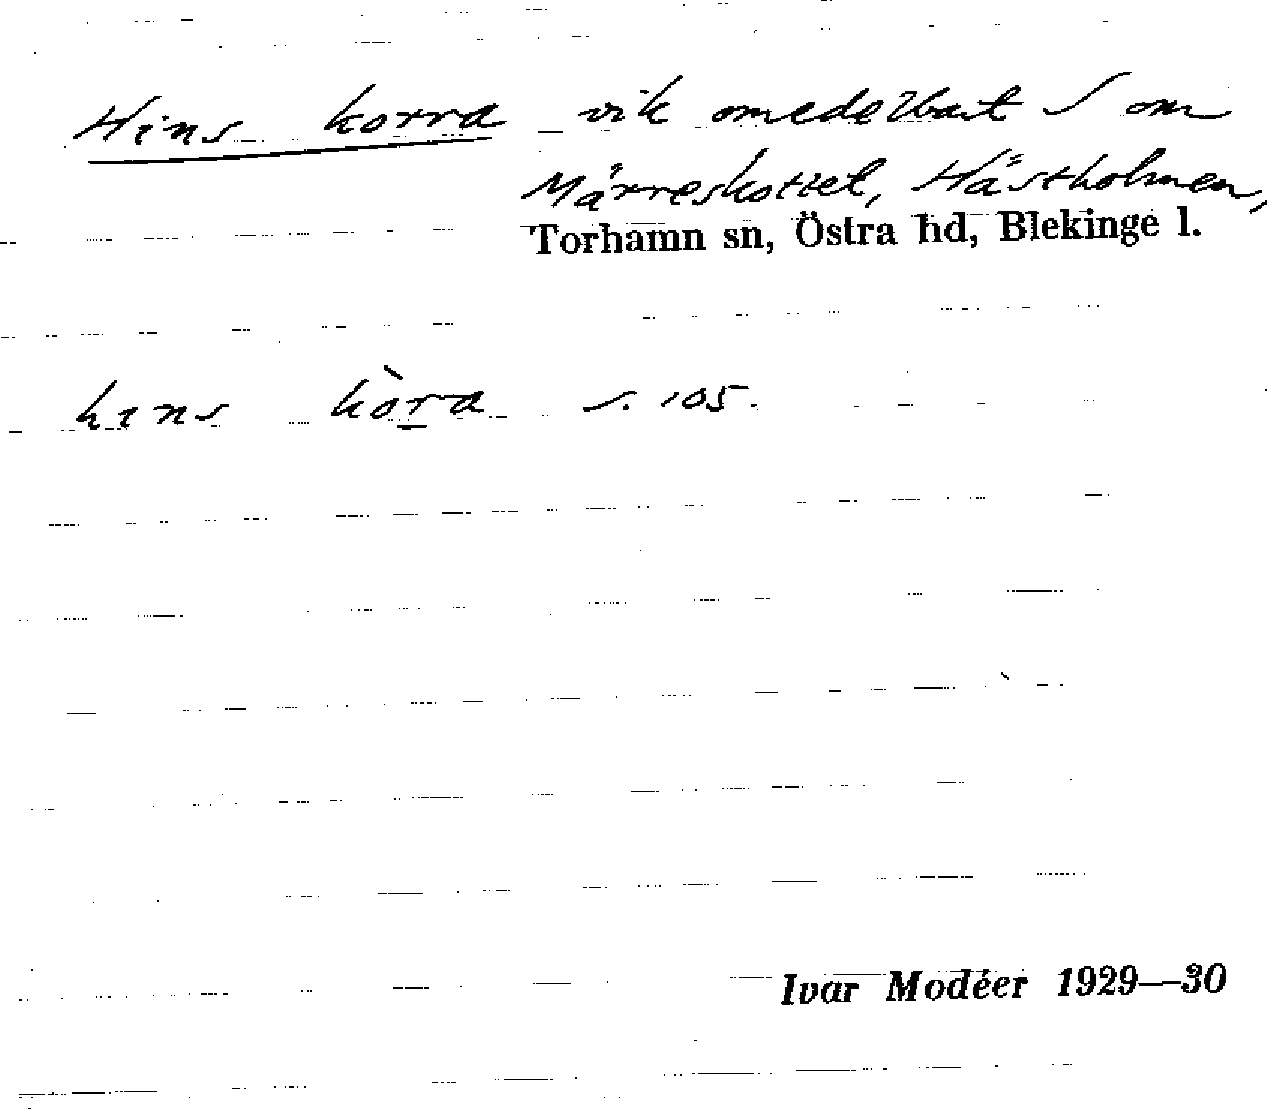 Hins korra vik omedelbart S om
Märreskottet, Hästholmen,
Torhamn sn, Östra hd, Blekinge l.
hins kòra s. 105.
Ivar Modéer 1929—30